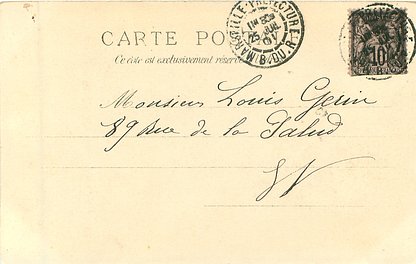 CARTE POSTALE
Ce côté est exclusivement réservé
MARSEILLE-PRÉFECTURE
25
B. DU. R.
10
Monsieur Louis Gerin
89 Rue de la Palud